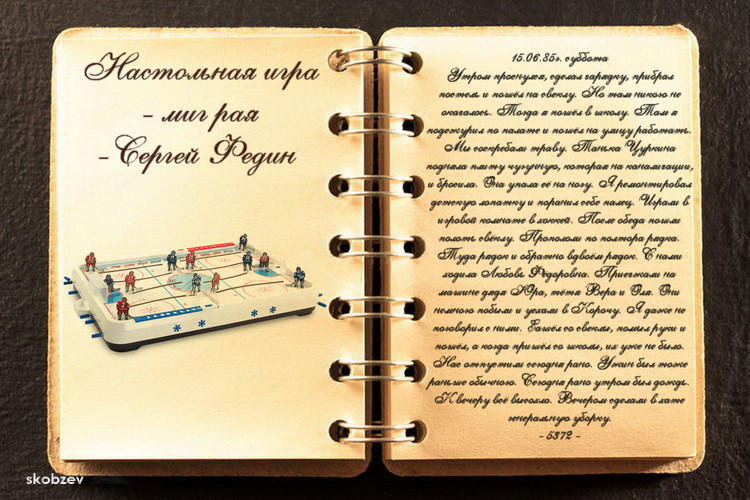 Настольная игра
- миг рая
- Сергей Федин
15.06.85г. суббота
Утром проснулся, сделал зарядку, прибрал
постель и пошёл на свеклу. Но там никого не
оказалось. Тогда я пошёл в школу. Там я
подежурил по палате и пошёл на улицу работать.
Мы соскребали траву. Танька Цуркина
подняла плиту чугунную, которая на канализации,
и бросила. Она упала её на ногу. Я ремонтировал
детскую лопатку и поранил себе палец. Играли в
игровой комнате в хоккей. После обеда пошли
полоть свёклу. Прополол по полтора рядка.
Туда рядок и обратно вдвоём рядок. С нами
ходила Любовь Фёдоровна. Приезжали на
машине дядя Юра, тётя Вера и Оля. Они
немного побыли и уехали в Корочу. Я даже не
поговорил с ними. Зашёл со свеклы, помыл руки и
пошёл, а когда пришёл со школы, их уже не было.
Нас отпустили сегодня рано. Ужин был тоже
раньше обычного. Сегодня рано утром был дождь.
К вечеру всё высохло. Вечером сделали в хате
генеральную уборку.
- 5372 -
skobzev